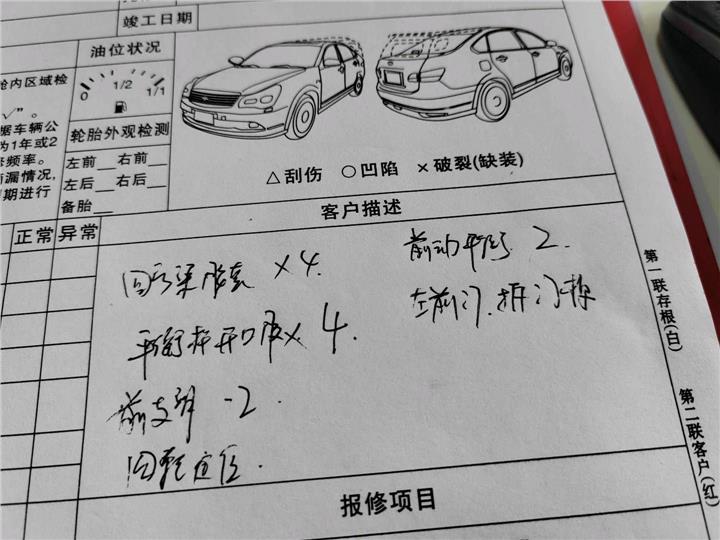 竣工日期
油位状况
舱内区域检
0 1/2 1/1
√"。
据车辆公
为1年或2
修频率。
漏情况,
期进行
轮胎外观检测
左前__右前__
左后__右后__
备胎__
△刮伤 ○凹陷 ×破裂(缺装)
正常 异常
客户描述
×4
前 2
平衡杆开口胶× 4
左前门
前支 -2
四轮定位
报修项目
第一联存根(白)
第二联客户(红)